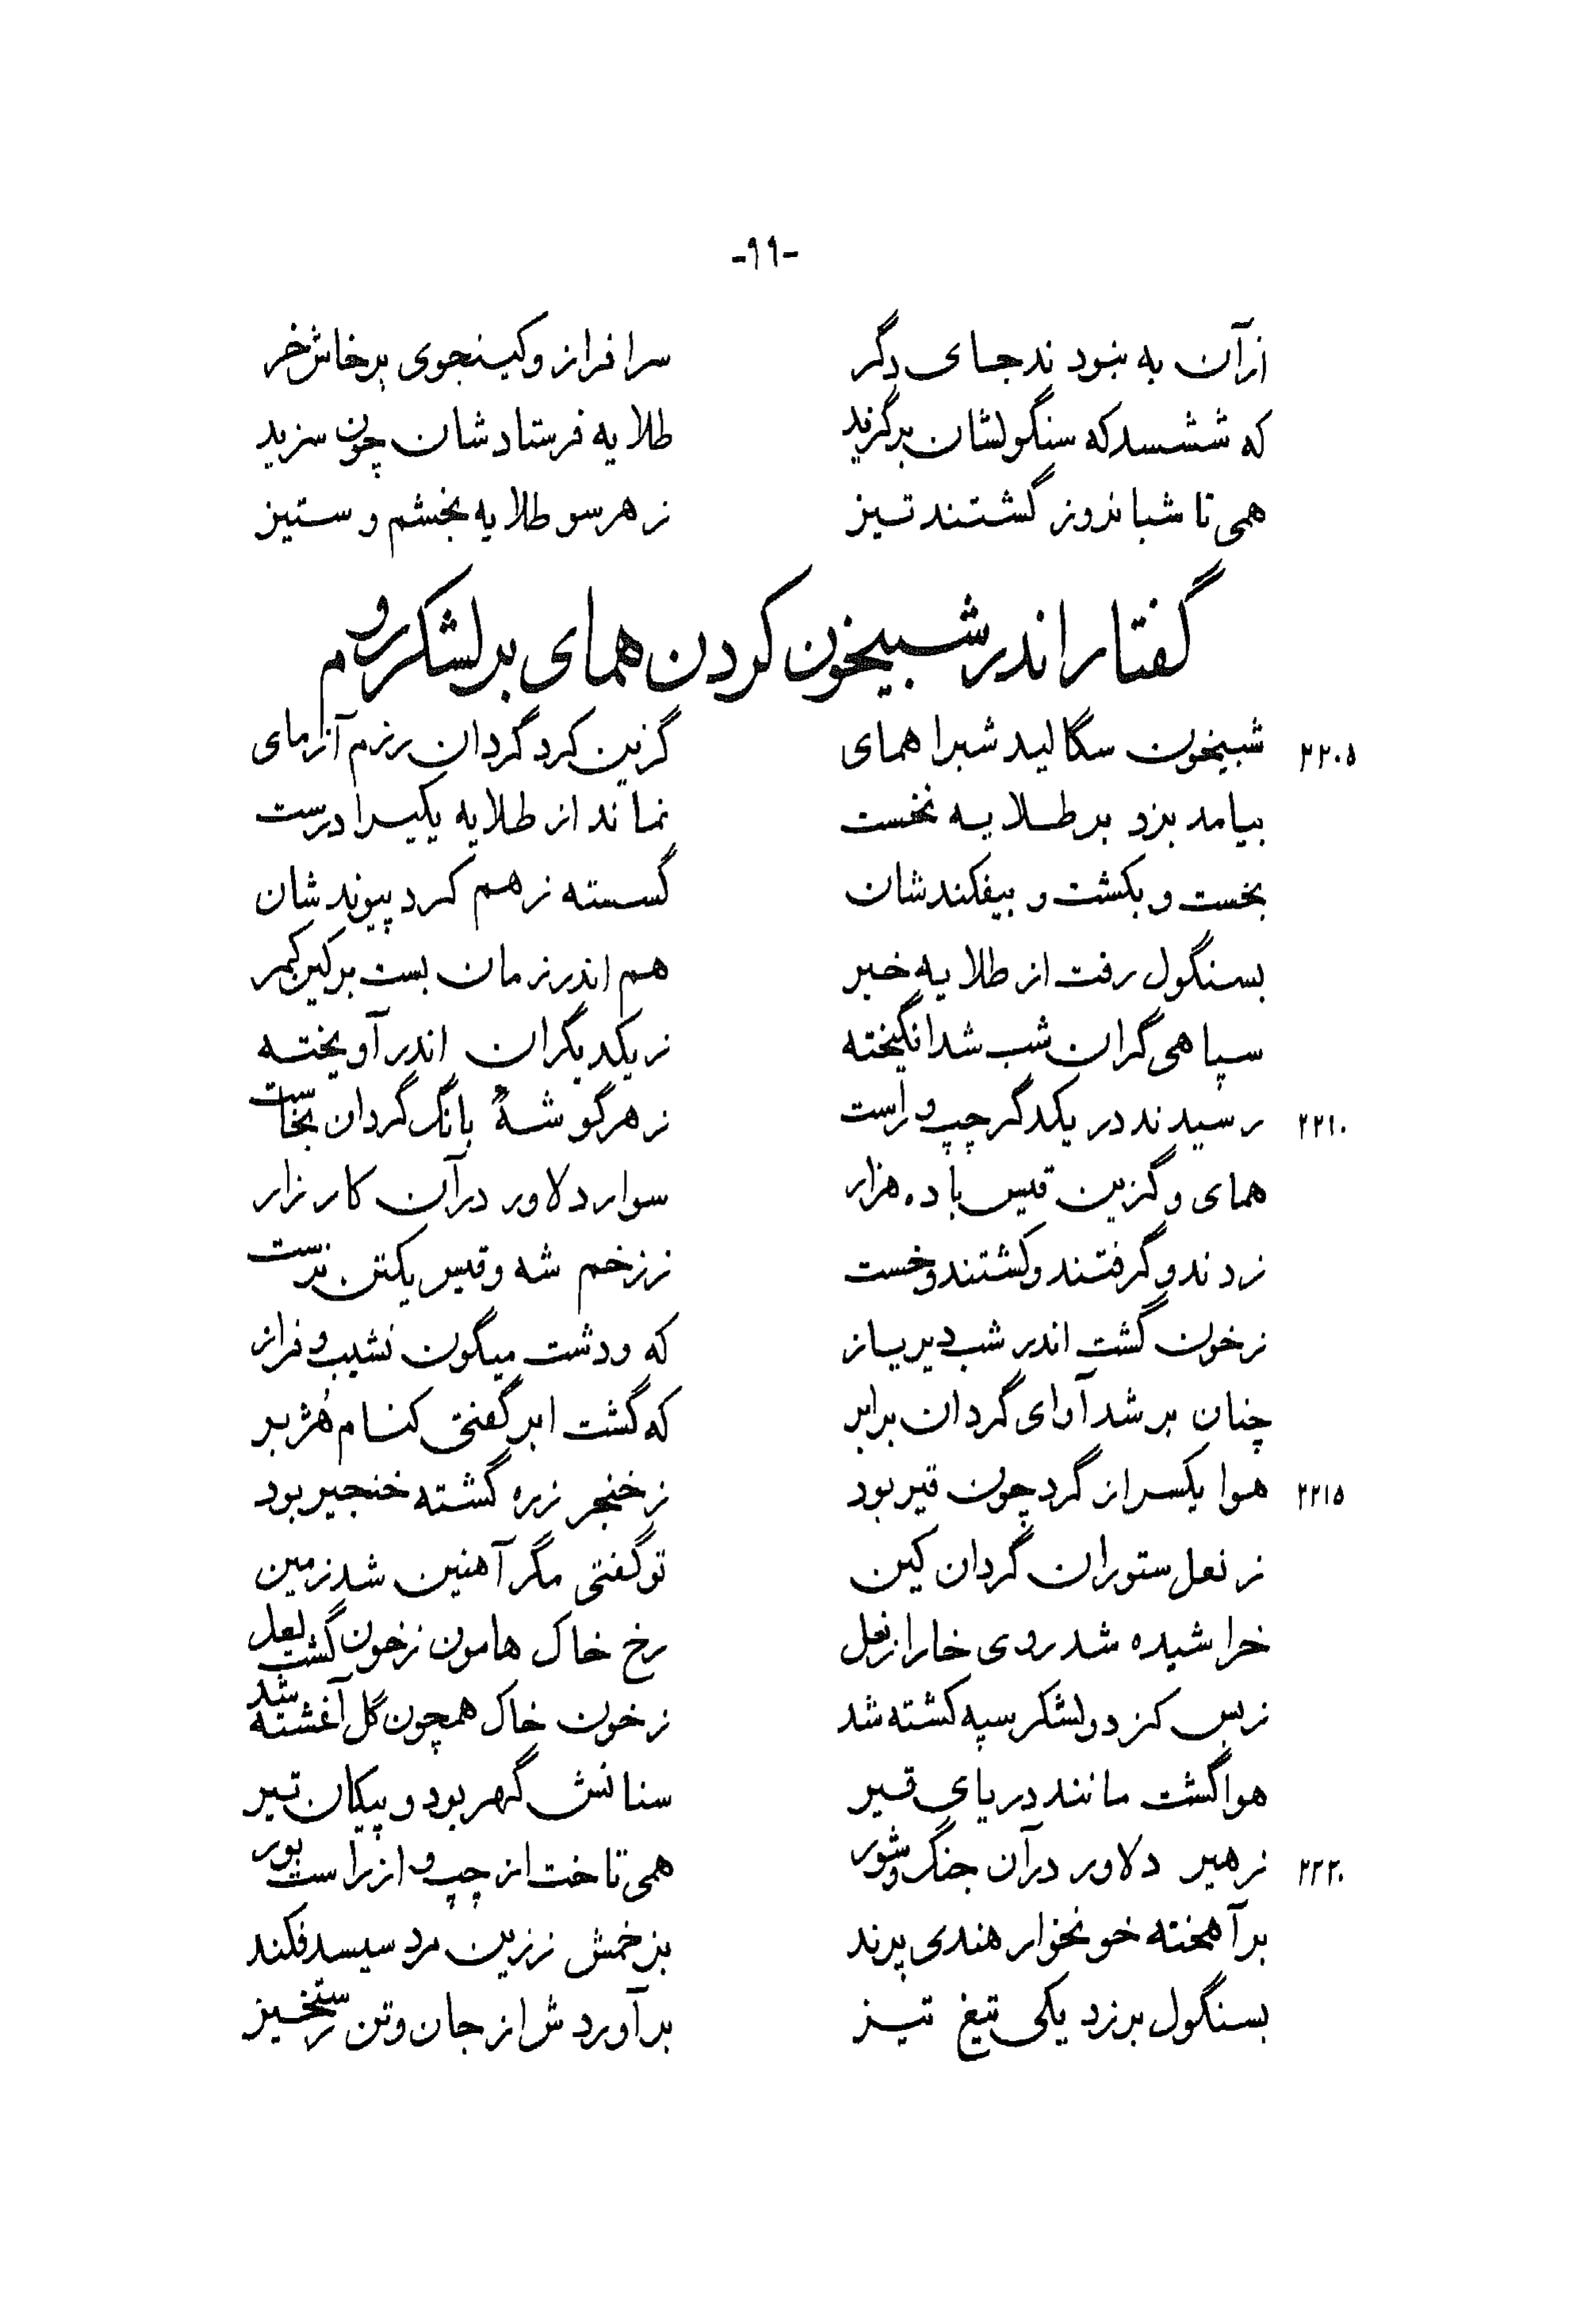 -۹۹-
از آن به نبودند جای دگر سرافراز و کینجوی پرخاش خر
که ششسد که سنگولشان برگزید طلایه فرستادشان چون سزید
همی تا شبانروز گشتند تیز ز هر سو طلایه بخشم و ستیز
گفتار اندر شبیخون کردن همای بر لشکر روم
۲۲۰۵ شبیخون سگالید شبرا همای گزین کرد گردان رزم آزمای
بیامد بزد بر طلایه نخست نماند از طلایه یکیرا درست
بخست و بکشت و بیفکندشان گسسته ز هم کرد پیوندشان
بسنگول رفت از طلایه خبر هم اندر زمان بست بر کین کمر
سپاهی گران شب شد انگیخته ز یکدیگران اندر آویخته
۲۲۱۰ رسیدند در یکدگر چپ و راست ز هر گوشهٔ بانگ گردان بخاست
همای و گزین قیس با ده هزار سوار دلاور در آن کارزار
زدند و گرفتند و کشتند و خست ز زخم شه و قیس یکتن نرست
ز خون گشت اندر شب دیریاز که و دشت میگون نشیب و فراز
چنان بر شد آوای گردان برابر که گشت ابر گفتی کنام هژبر
۲۲۱۵ هوا یکسر از گرد چون قیر بود ز خنجر زره گشته خنجیر بود
ز نعل ستوران گردان کین تو گفتی مگر آهنین شد زمین
خراشیده شد روی خارا ز نعل رخ خاک هامون ز خون گشت لعل
ز بس کز دو لشکر سپه کشته شد ز خون خاک همچون گل آغشته شد
هوا گشت مانند دریای قیر سنانش گهر بود و پیکان تیر
۲۲۲۰ زهیر دلاور در آن جنگ و شور همی تاخت از چپ و از راست بور
بر آهخته خونخوار هندی پرند بزخمش ز زین مرد سیسد فکند
بسنگول بر زد یکی تیغ تیز بر آوردش از جان و تن رستخیز